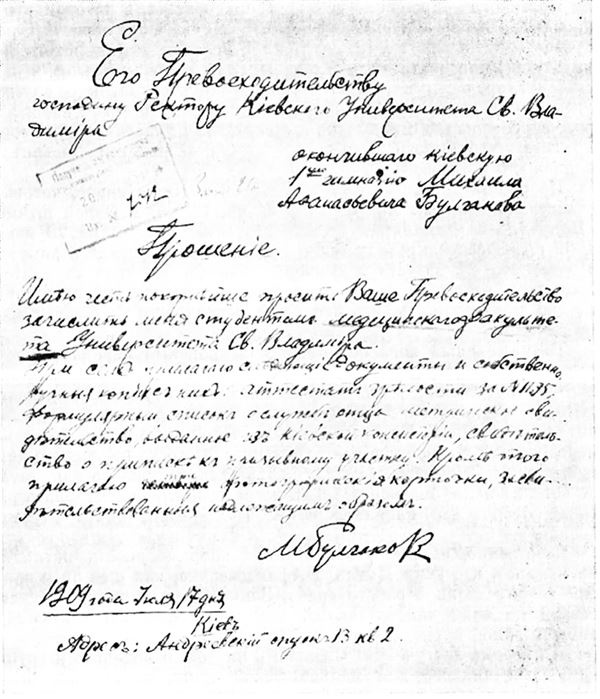 Его Превосходительству
господину Ректору Кіевского Университета Св. Вла-
диміра
окончившаго Кіевскую
1ую гимназію Михаила
Афанасьевича Булгакова
Прошеніе.
Имѣю честь покорнѣйше просить Ваше Превосходительство
зачислить меня студентомъ медицинскаго факульте-
та Университета Св. Владиміра.
При семъ прилагаю слѣдующіе документы и собственно-
ручныя копіи съ нихъ: аттестатъ зрѣлости за №1195
формулярный списокъ о службѣ отца, метрическое сви-
дѣтельство, изъ Кіевской Консисторіи, свидѣтель-
ство о припискѣ къ призывному участку. Кромѣ того
прилагаю фотографическія карточки, засви-
дѣтельствованныя надлежащимъ образомъ.
МБулгаковъ
1909 года Іюля 17 дня
Кіевъ
Адресъ: Андреевскій спускъ 13 кв 2.